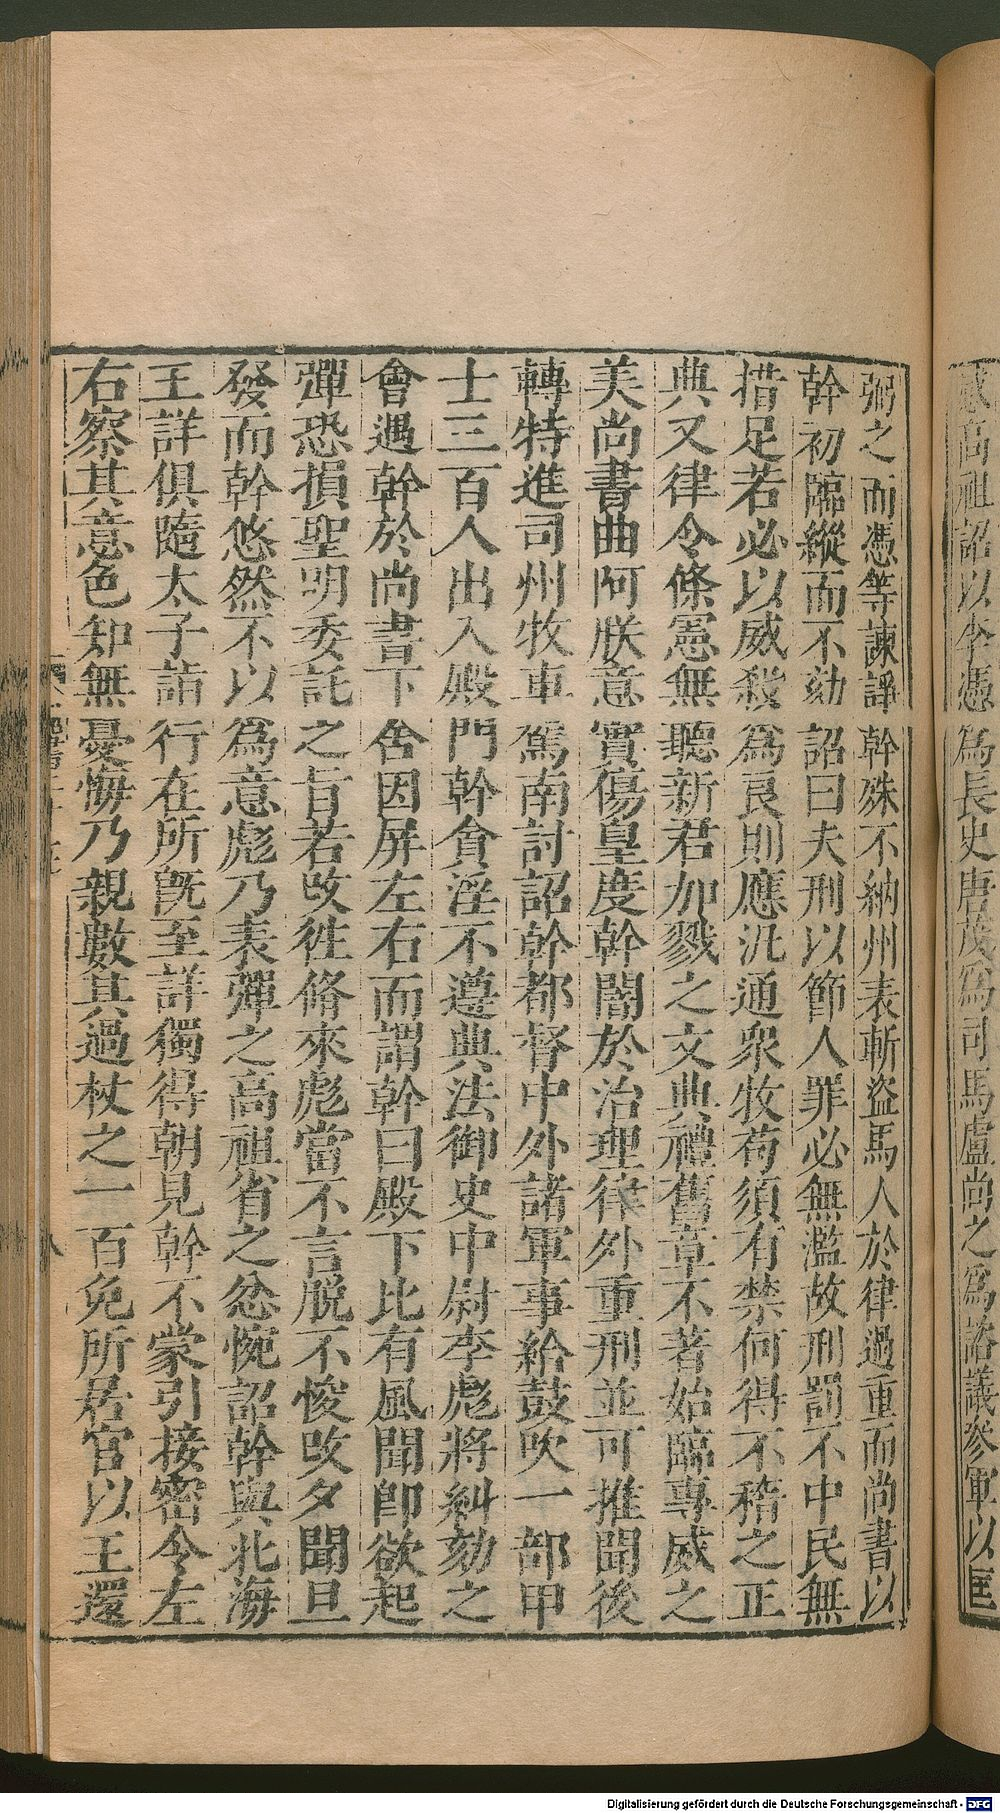 高祖詔以李憑為長史唐茂為司馬盧尚之為諮議參軍以匡
弼之而憑等諫諍幹殊不納州表斬盜馬人於律過重而尚書以
幹初臨縱而不劾詔曰夫刑以節人罪必無濫故刑罰不中民無
措足若必以威殺為良則應汎通衆牧苟須有禁何得不稽之正
典又律令條憲無聽新君加戮之文典禮舊章不著始臨專威之
美尚書曲阿朕意實傷皇度幹闇於治理律外重刑並可推聞後
轉特進司州牧車駕南討詔幹都督中外諸軍事給鼓吹一部甲
士三百人出入殿門幹貪淫不遵典法御史中尉李彪將糾劾之
會遇幹於尚書下舍因屏左右而謂幹曰殿下比有風聞即欲起
彈恐損聖明委託之旨若改徃脩來彪當不言脱不悛改夕聞旦
發而幹悠然不以為意彪乃表彈之高祖省之忿惋詔幹與北海
王詳俱隨太子詣行在所既至詳獨得朝見幹不蒙引接密令左
右察其意色知無憂悔乃親數其過杖之一百免所居官以王還
八
Digitalisierung gefördert durch die Deutsche Forschungsgemeinschaft - DFG